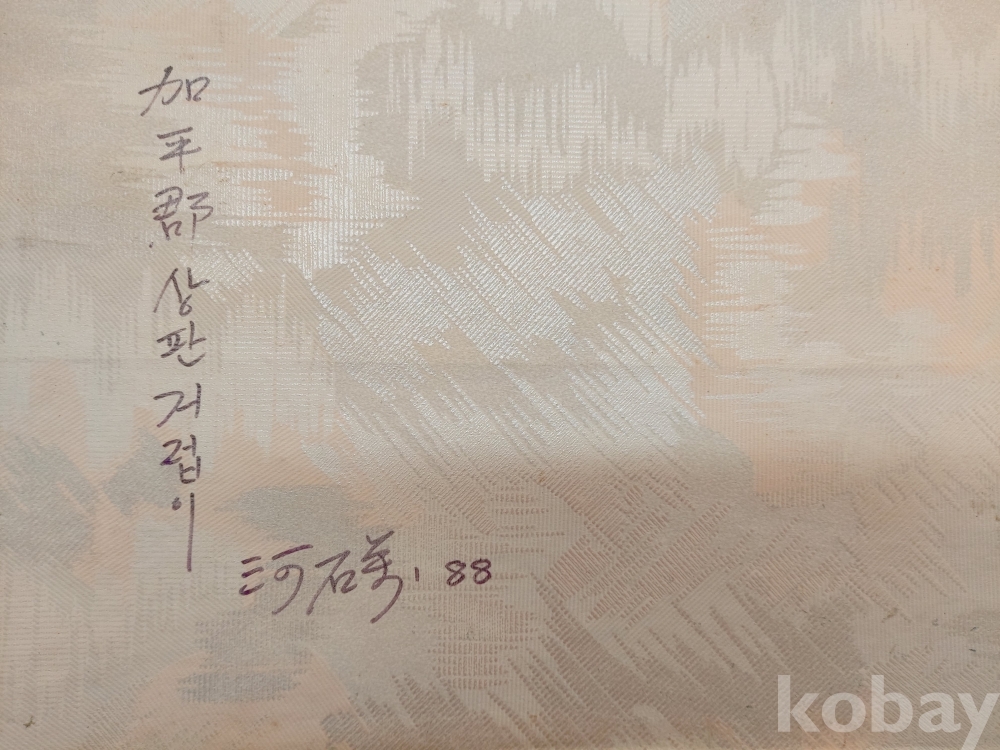 加平郡 상판 거럽이
河石 '88
kobay